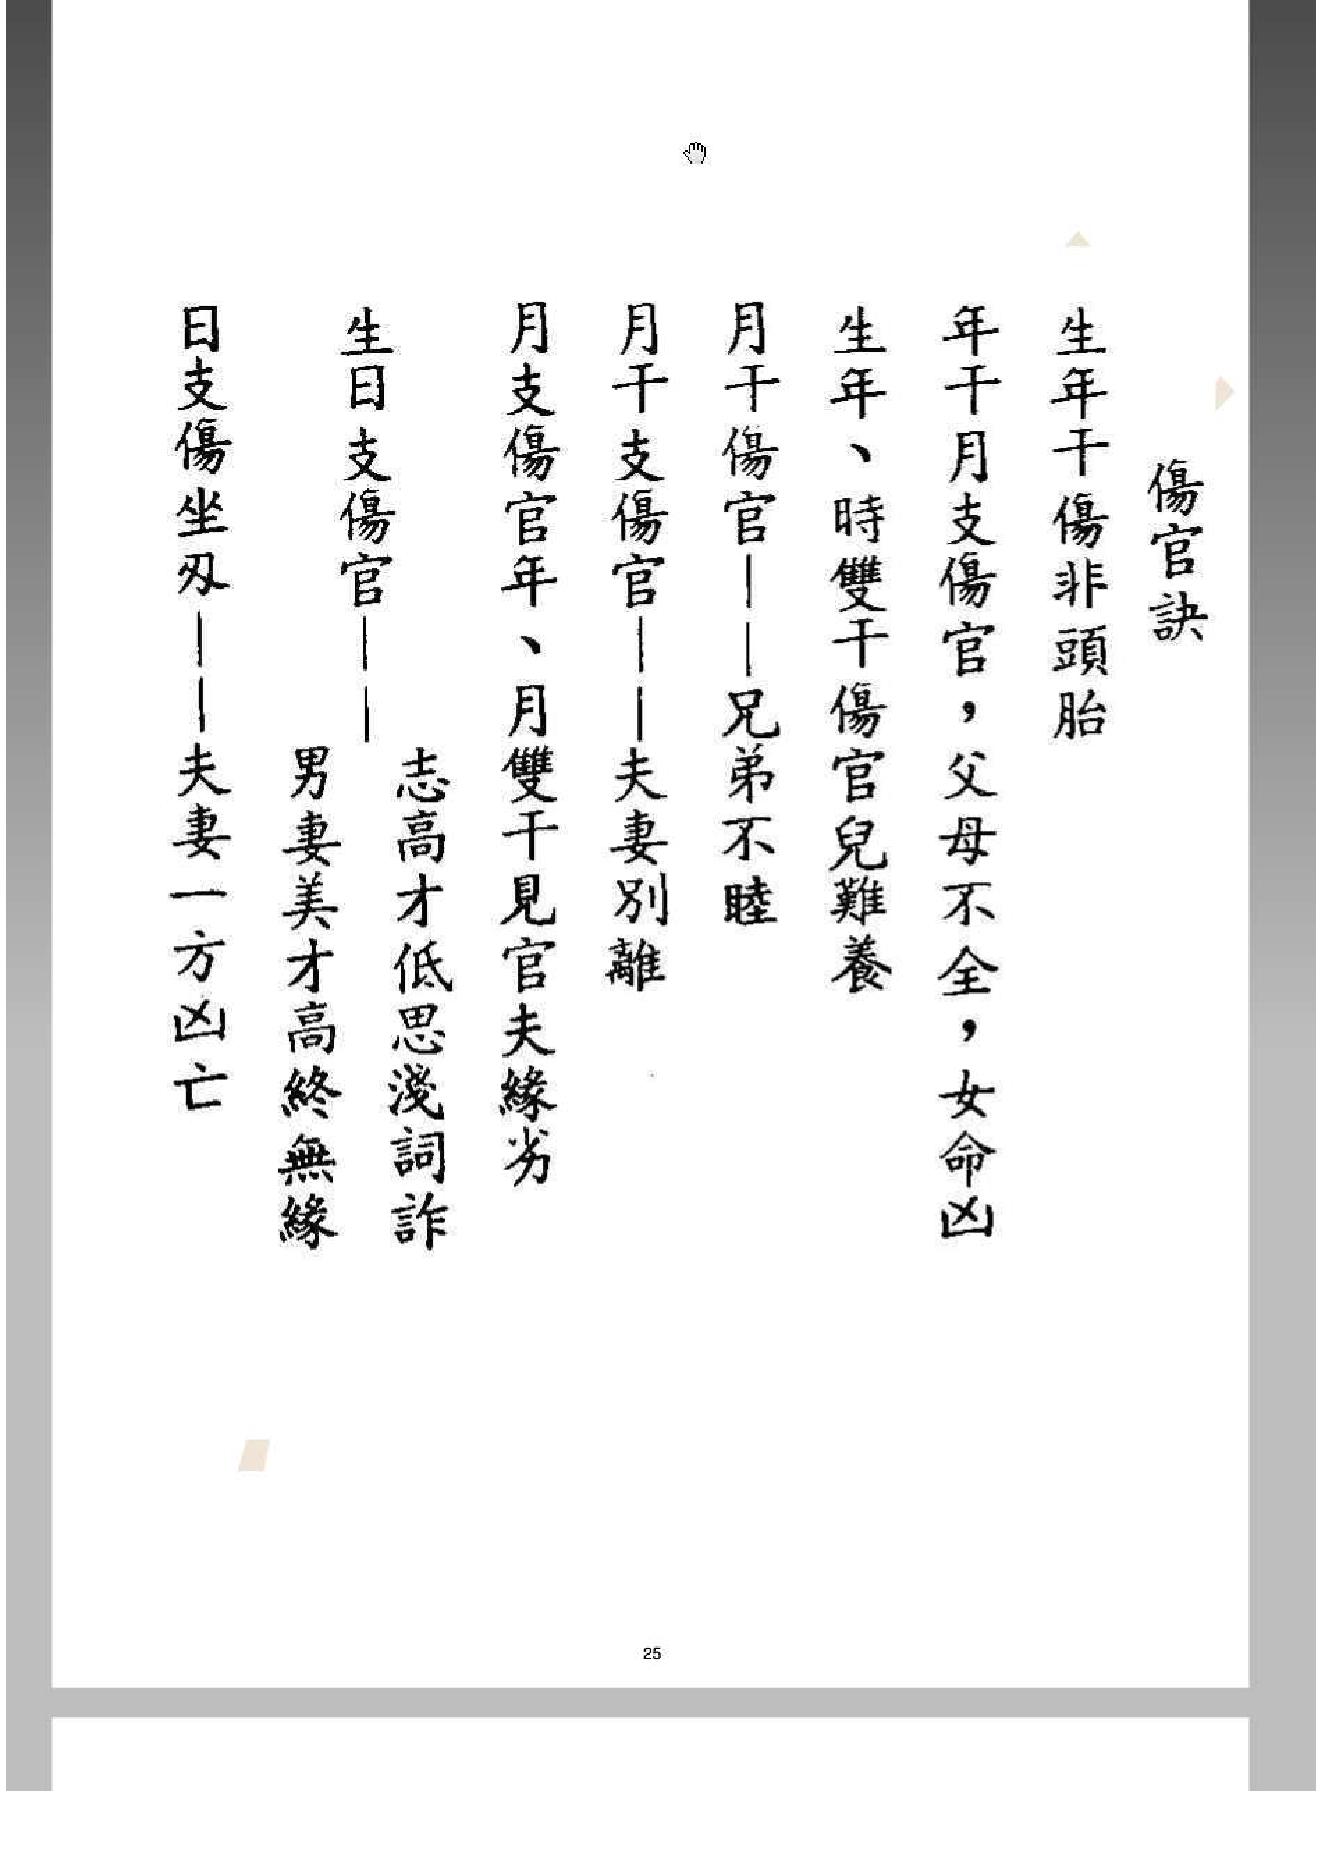 傷官訣
生年干傷非頭胎
年干月支傷官，父母不全，女命凶
生年、時雙干傷官兒難養
月干傷官——兄弟不睦
月干支傷官——夫妻別離
月支傷官年、月雙干見官夫緣劣
生日支傷官——
志高才低思淺詞詐
男妻美才高終無緣
日支傷坐刃——夫妻一方凶亡
25